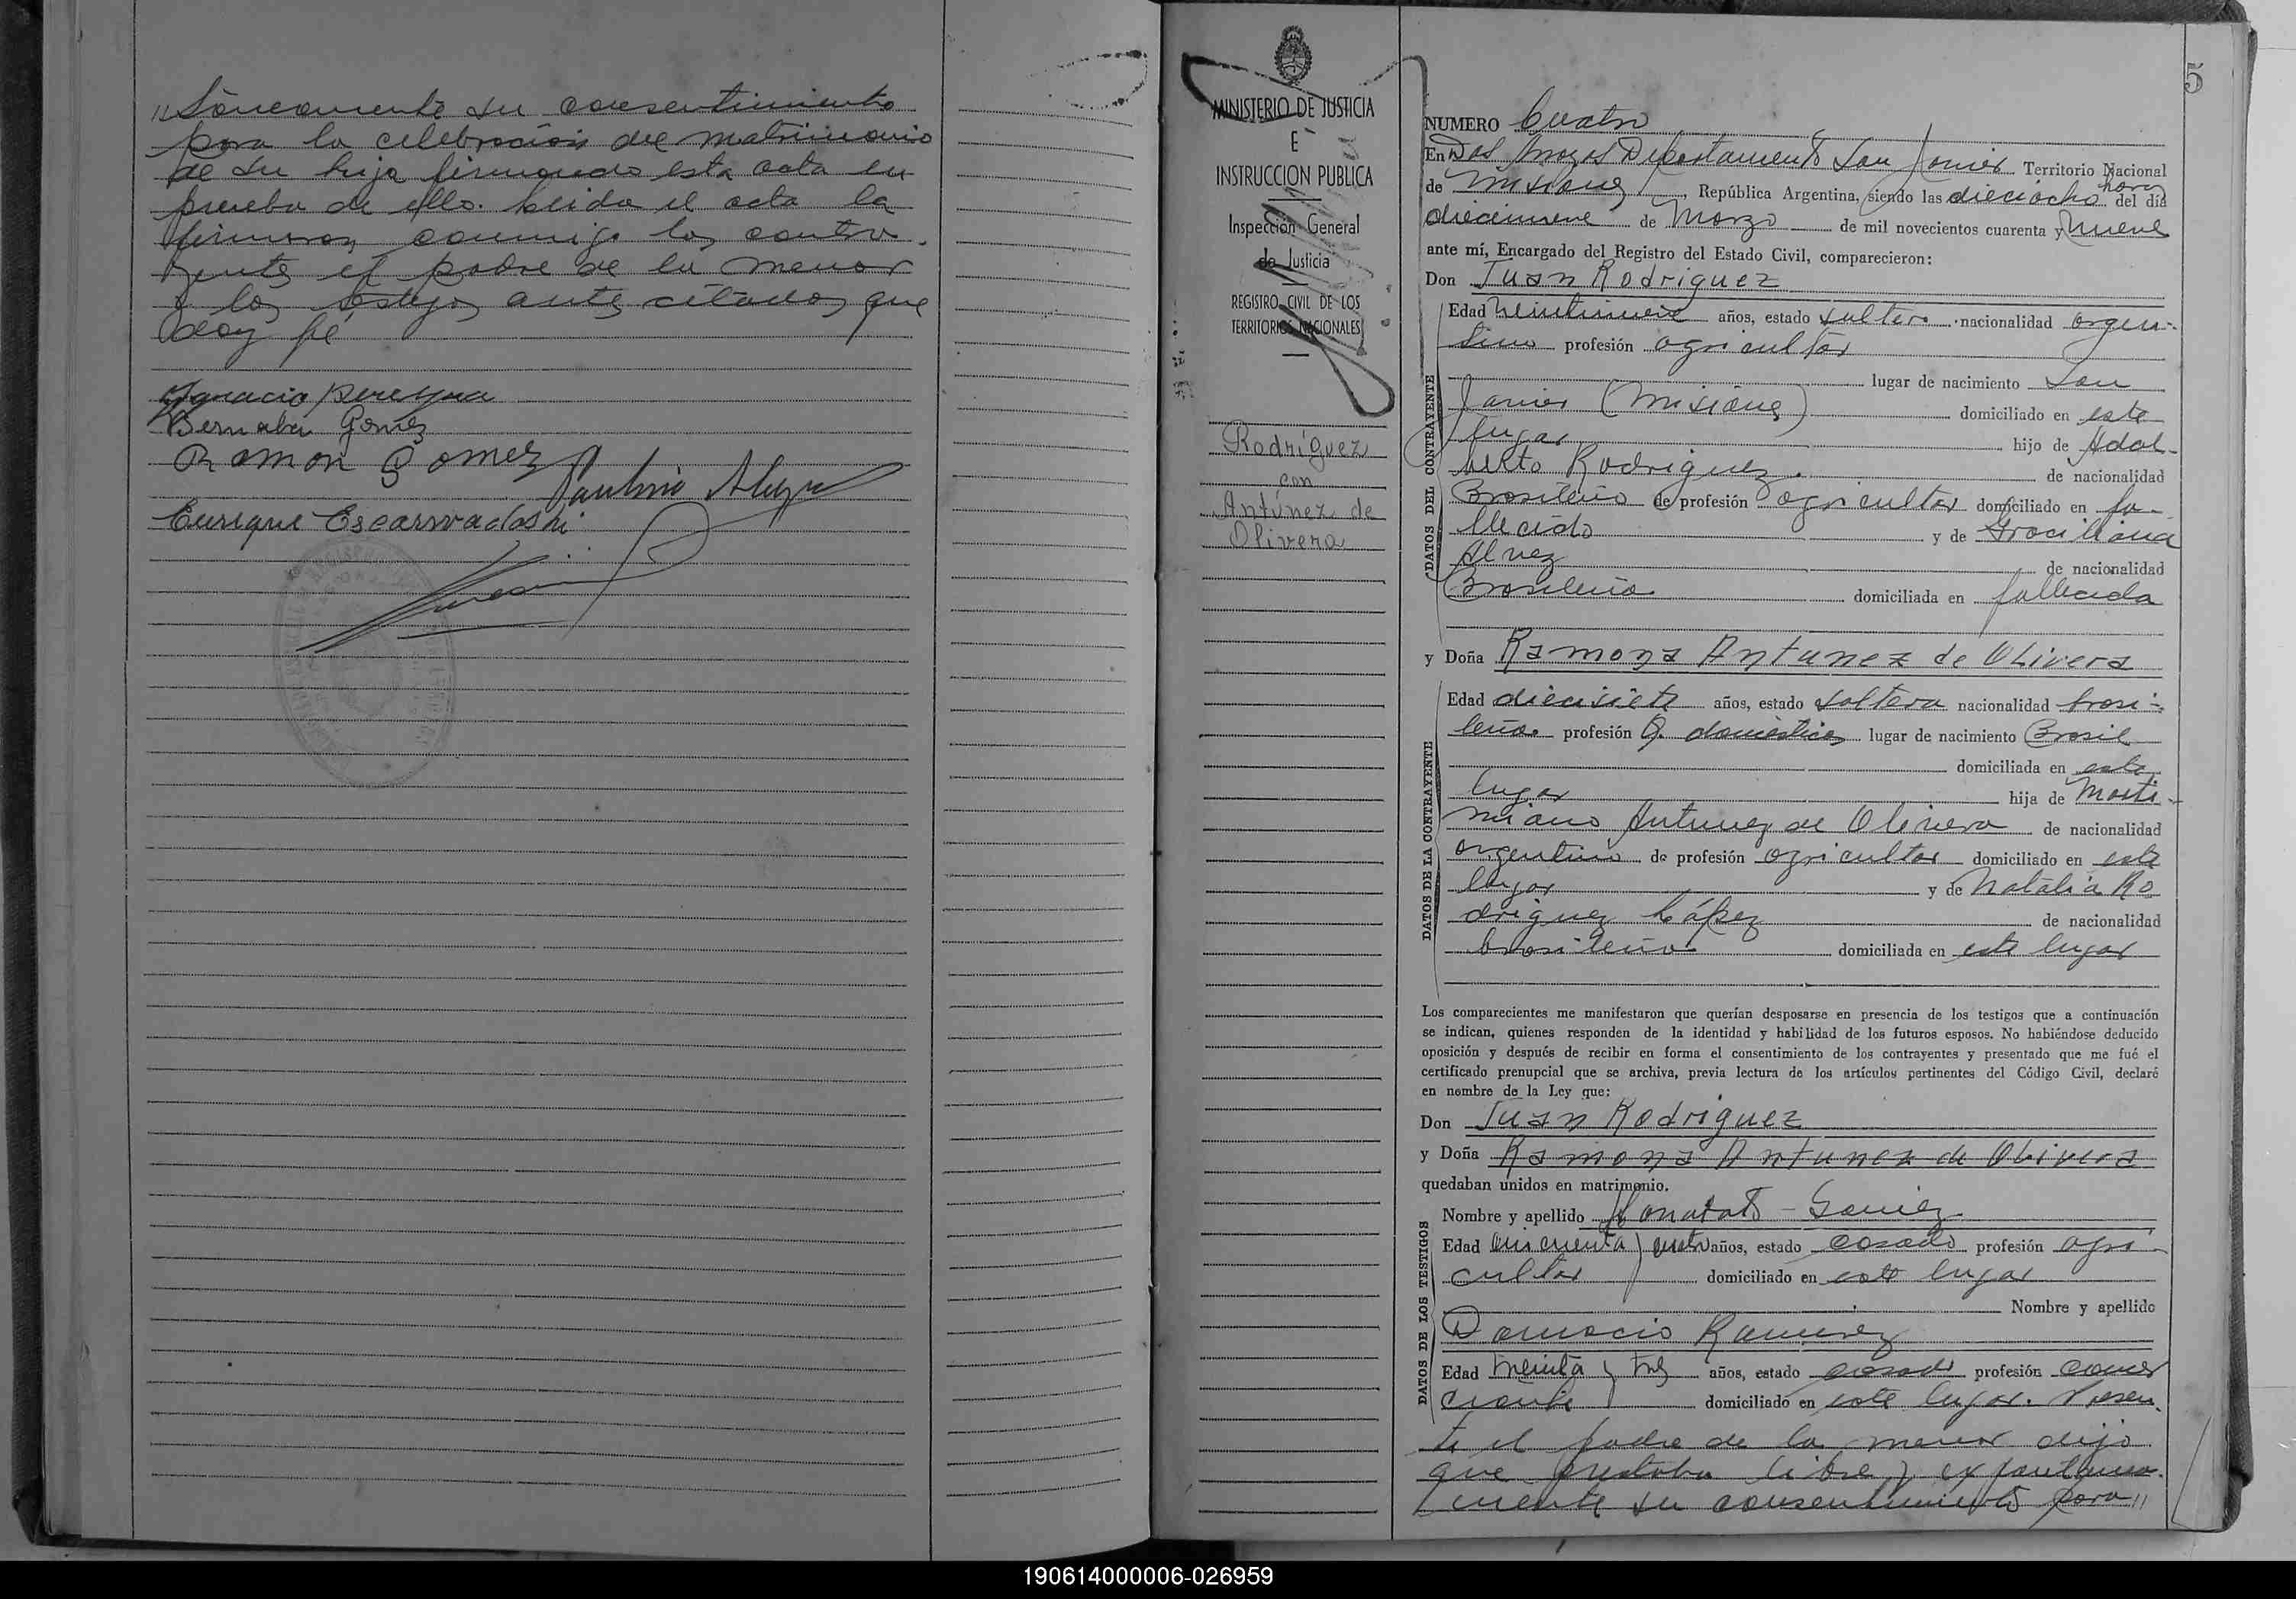 //táneamente su consentimiento
para la celebración del matrimonio
de su hija firmando esta acta en
prueba de ello. Leida el acta la
firmaron conmigo los contra-
yentes el padre de la menor
y los testigos antes citados que
doy fé
Ignacio pereyra
Bernabe Gomez
Ramon Gomez
Paulino
Enrique
MINISTERIO DE JUSTICIA
E
INSTRUCCION PUBLICA
Inspección General
de Justicia
REGISTRO CIVIL DE LOS
TERRITORIOS NACIONALES
Rodríguez
con
Antúnez de
Olivera
5
NUMERO Cuatro
En Dos Arroyos Departamento San Javier Territorio Nacional
de Misiones, República Argentina, siendo las dieciocho horas del día
diecinueve de Marzo de mil novecientos cuarenta y nueve
ante mí, Encargado del Registro del Estado Civil, comparecieron:
Don Juan Rodriguez
DATOS DEL CONTRAYENTE
Edad veintinueve años, estado soltero nacionalidad argen-
tino profesión agricultor
lugar de nacimiento San
Javier (Misiones) domiciliado en este
lugar hijo de Adal-
berto Rodriguez. de nacionalidad
Brasileño de profesión agricultor domiciliado en fa-
llecido y de Gracilliana
Alvez de nacionalidad
Brasileña domiciliada en fallecida
y Doña Ramona Antunez de Olivera
DATOS DE LA CONTRAYENTE
Edad diecisiete años, estado soltera nacionalidad brasi-
leña. profesión Q. domésticos lugar de nacimiento Brasil
domiciliada en este
lugar hija de Marti-
miano Antunez de Olivera de nacionalidad
argentino de profesión agricultor domiciliado en este
lugar y de Natalia Ro
driguez López de nacionalidad
brasileña domiciliada en este lugar
Los comparecientes me manifestaron que querían desposarse en presencia de los testigos que a continuación
se indican, quienes responden de la identidad y habilidad de los futuros esposos. No habiéndose deducido
oposición y después de recibir en forma el consentimiento de los contrayentes y presentado que me fué el
certificado prenupcial que se archiva, previa lectura de los artículos pertinentes del Código Civil, declaré
en nombre de la Ley que:
Don Juan Rodriguez
y Doña Ramona Antunez de Olivera
quedaban unidos en matrimonio.
DATOS DE LOS TESTIGOS
Nombre y apellido Honorato Gomez
Edad cincuenta y cuatro años, estado casado profesión agri-
cultor domiciliado en este lugar
Nombre y apellido
Damacio Ramirez
Edad treinta y tres años, estado casado profesión comer
ciante domiciliado en este lugar. Presen-
te el padre de la menor dijo
que prestaba libre y expontanea-
mente su consentimiento para//
190614000006-026959